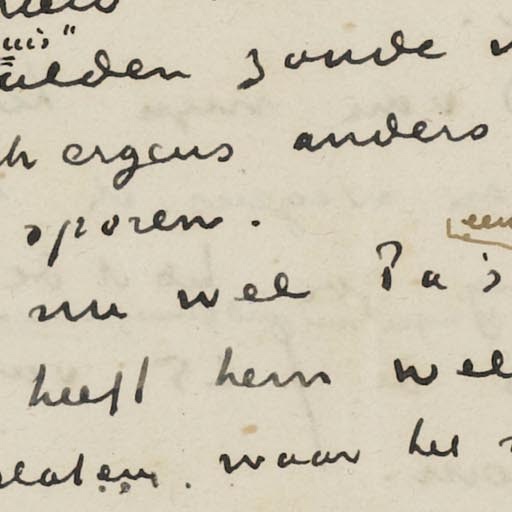 uis"
ulden zonde
h ergens anders
sporen.
een
nu wel Pa's
heeft hem wel
laten. waar het